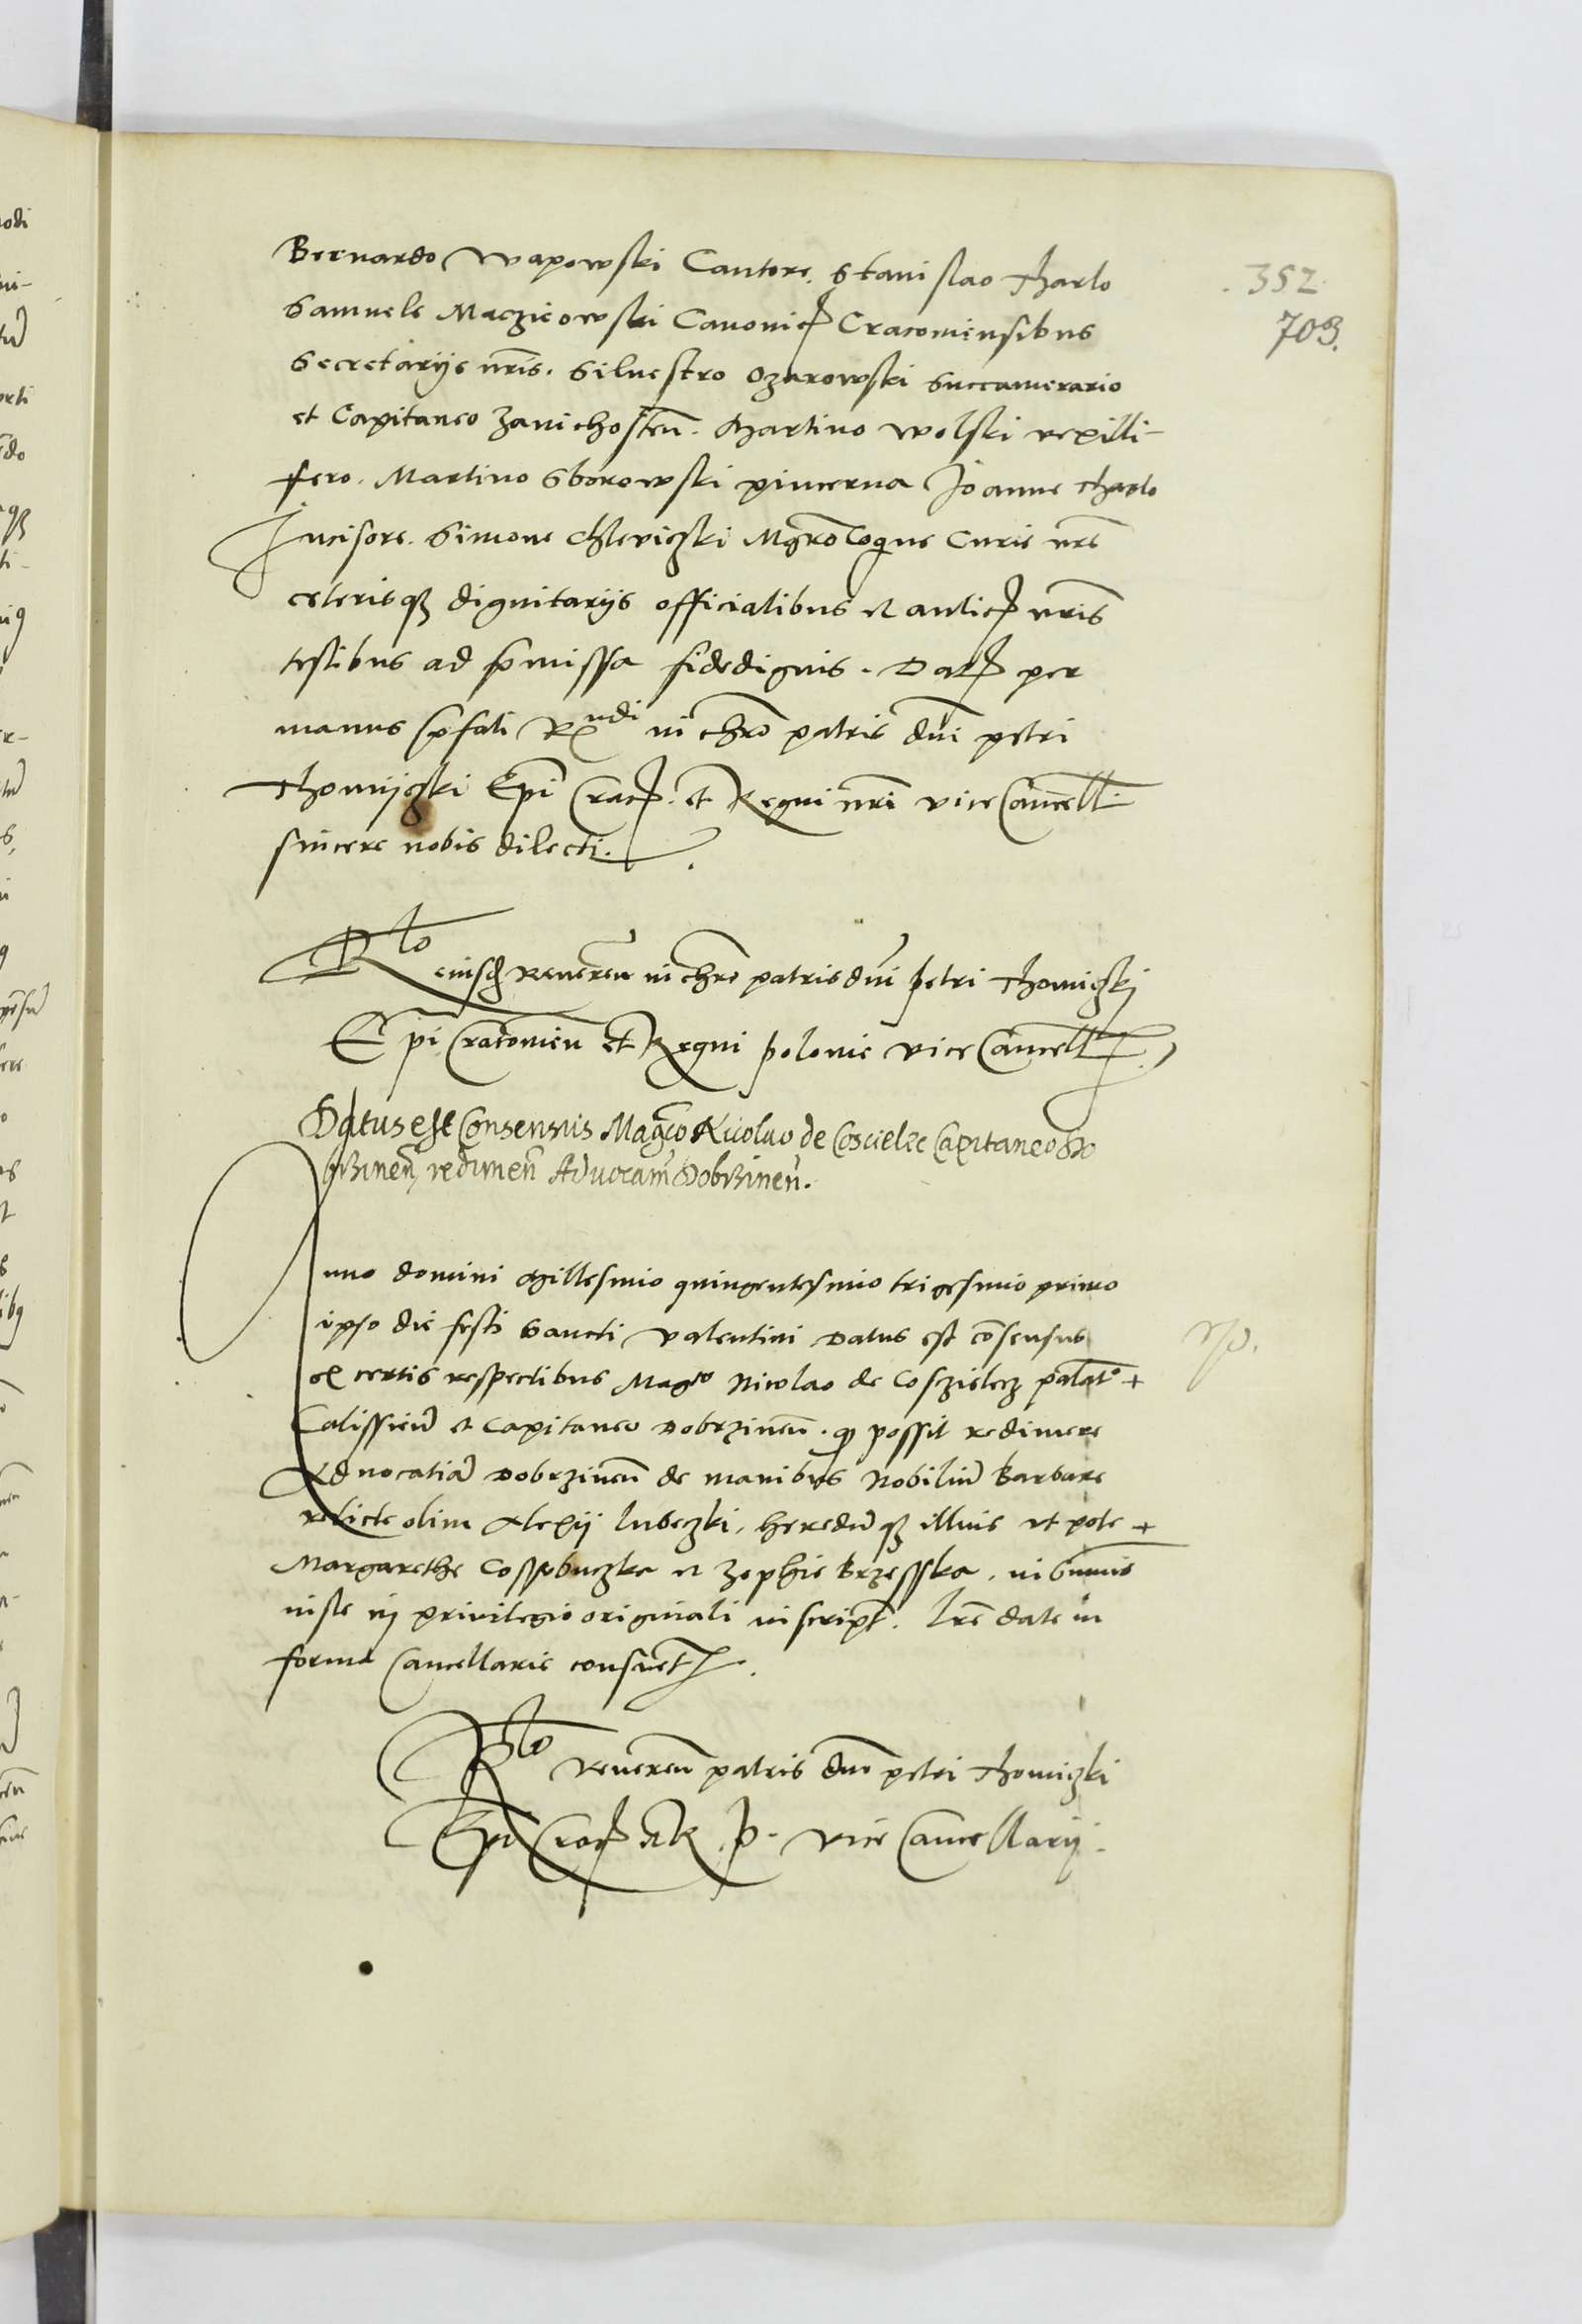 Bernardo Wapowski Cantore. Stanislao Tharlo
352
Samuele Maczieowski Canonic Cracoviensibus
703.
Secretarijs nris. Silvestro Ozarowski Succamerario
et Capitaneo Zavichosten. Martino Wolski vexilli-
fero. Martino Sborowski pincerna Joanne Tharlo
Incisore. Simone Chleviczski Mgro Coquine Curie nre
ceterisq dignitarijs officialibus et aulic nris
testibus ad pmissa fidedignis. Dat per
manus pfati Rndi in chro patris dni petri
Thomijczki Epi Crac. et Regni nri vice Cancell
sincere nobis dilecti.
Rlo
eiusd Reveren in chro patris dni petri Thomiczkj
Epi Cracovien et Regni polonie vice Cancell
Datus est Consensus Magco Nicolao de Coscielec Capitaneo Do
brzinen redimen Advocam Dobrzinen.
Anno domini Millesimo quingentesimo trigesimo primo
ipso die festi Sancti Valentini Datus est consensus
ex certis respectibus Magco Nicolao de Cosczielecz palato +
Calissien et Capitaneo Dobrzinen. q possit redimere
Advocatia Dobrzinen de manibus Nobiliu Barbare
relicte olim Alexij Lubeczki, heredu q illius ut pote +
Margarethe Cossobuczka et Zophie Brzesska, in Summis
in privilegio originali inscript. Lre date in
forma Cancellarie consuet.
Rlo Reveren patris dni petri Thomiczki
Epi Crac et R. p. vice Cancellarij.